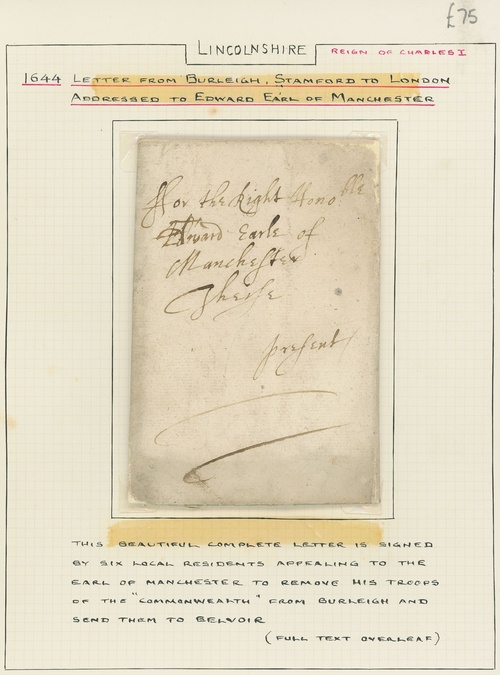 £75
LINCOLNSHIRE
REIGN OF CHARLES I
1644 LETTER FROM BURLEIGH, STAMFORD TO LONDON
ADDRESSED TO EDWARD EARL OF MANCHESTER
ffor the Right Honoble
Edward Earle of
Manchester
Theise
present
THIS BEAUTIFUL COMPLETE LETTER IS SIGNED
BY SIX LOCAL RESIDENTS APPEALING TO THE
EARL OF MANCHESTER TO REMOVE HIS TROOPS
OF THE "COMMONWEALTH" FROM BURLEIGH AND
SEND THEM TO BELVOIR
(FULL TEXT OVERLEAF)